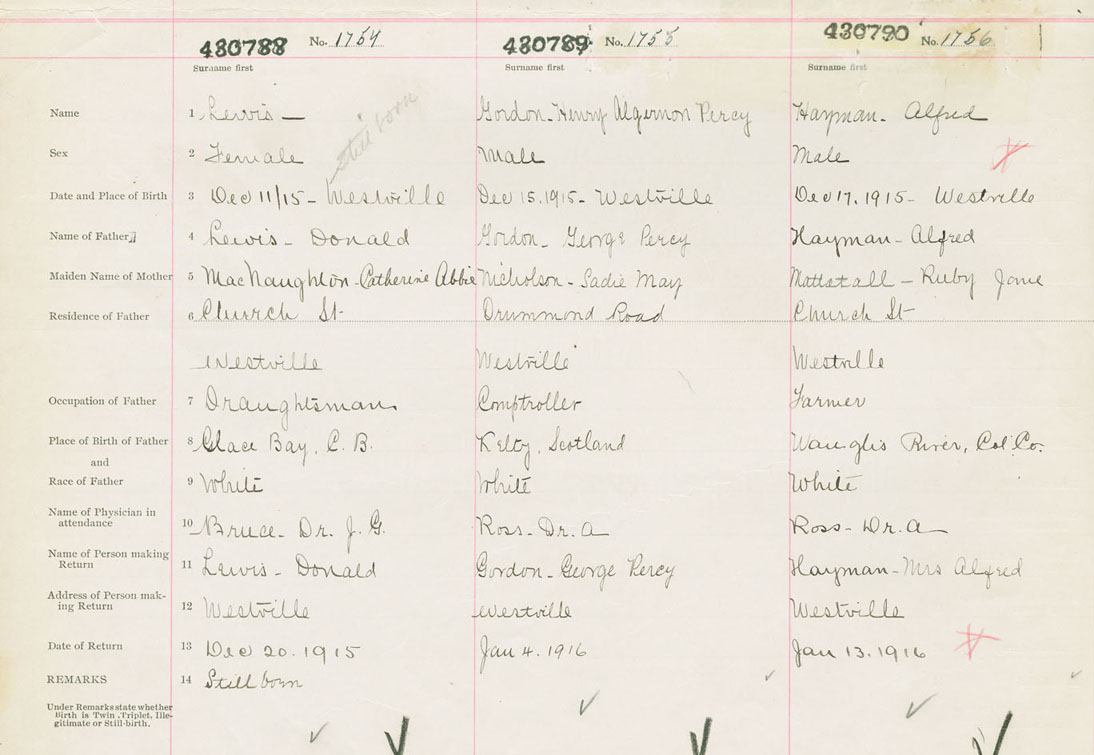 430788 No. 1754 430789 No. 1755 430790 No. 1756
Surname first Surname first Surname first
Name 1 Lewis — Gordon - Henry Algernon Percy Hayman - Alfred
Still born
Sex 2 Female Male Male
Date and Place of Birth 3 Dec 11/15 - Westville Dec 15, 1915 - Westville Dec 17, 1915 - Westville
Name of Father 4 Lewis - Donald Gordon - George Percy Hayman - Alfred
Maiden Name of Mother 5 MacNaughton - Catherine Abbie Nicholson - Sadie May Mattatall - Ruby Jane
Residence of Father 6 Church St Drummond Road Church St
Westville Westville Westville
Occupation of Father 7 Draughtsman Comptroller Farmer
Place of Birth of Father 8 Glace Bay, C. B. Kelty, Scotland River, Col. Co.
and
Race of Father 9 White White White
Name of Physician in
attendance 10 Bruce - Dr. J. G. Ross - Dr. A Ross - Dr. A
Name of Person making
Return 11 Lewis - Donald Gordon - George Percy Hayman - Mrs Alfred
Address of Person mak-
ing Return 12 Westville Westville Westville
Date of Return 13 Dec 20. 1915 Jan 4. 1916 Jan 13. 1916
REMARKS 14 Still born
Under Remarks state whether
Birth is Twin, Triplet, Ille-
gitimate or Still-birth.